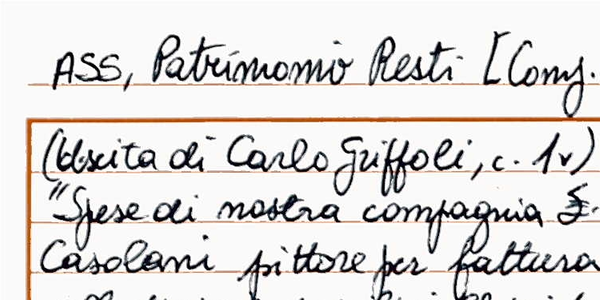 ASS, Patrimonio Resti [Comg.
(Uscita di Carlo Griffoli, c. 1v)
"Spese di nostra compagnia
Casolani pittore per fattura